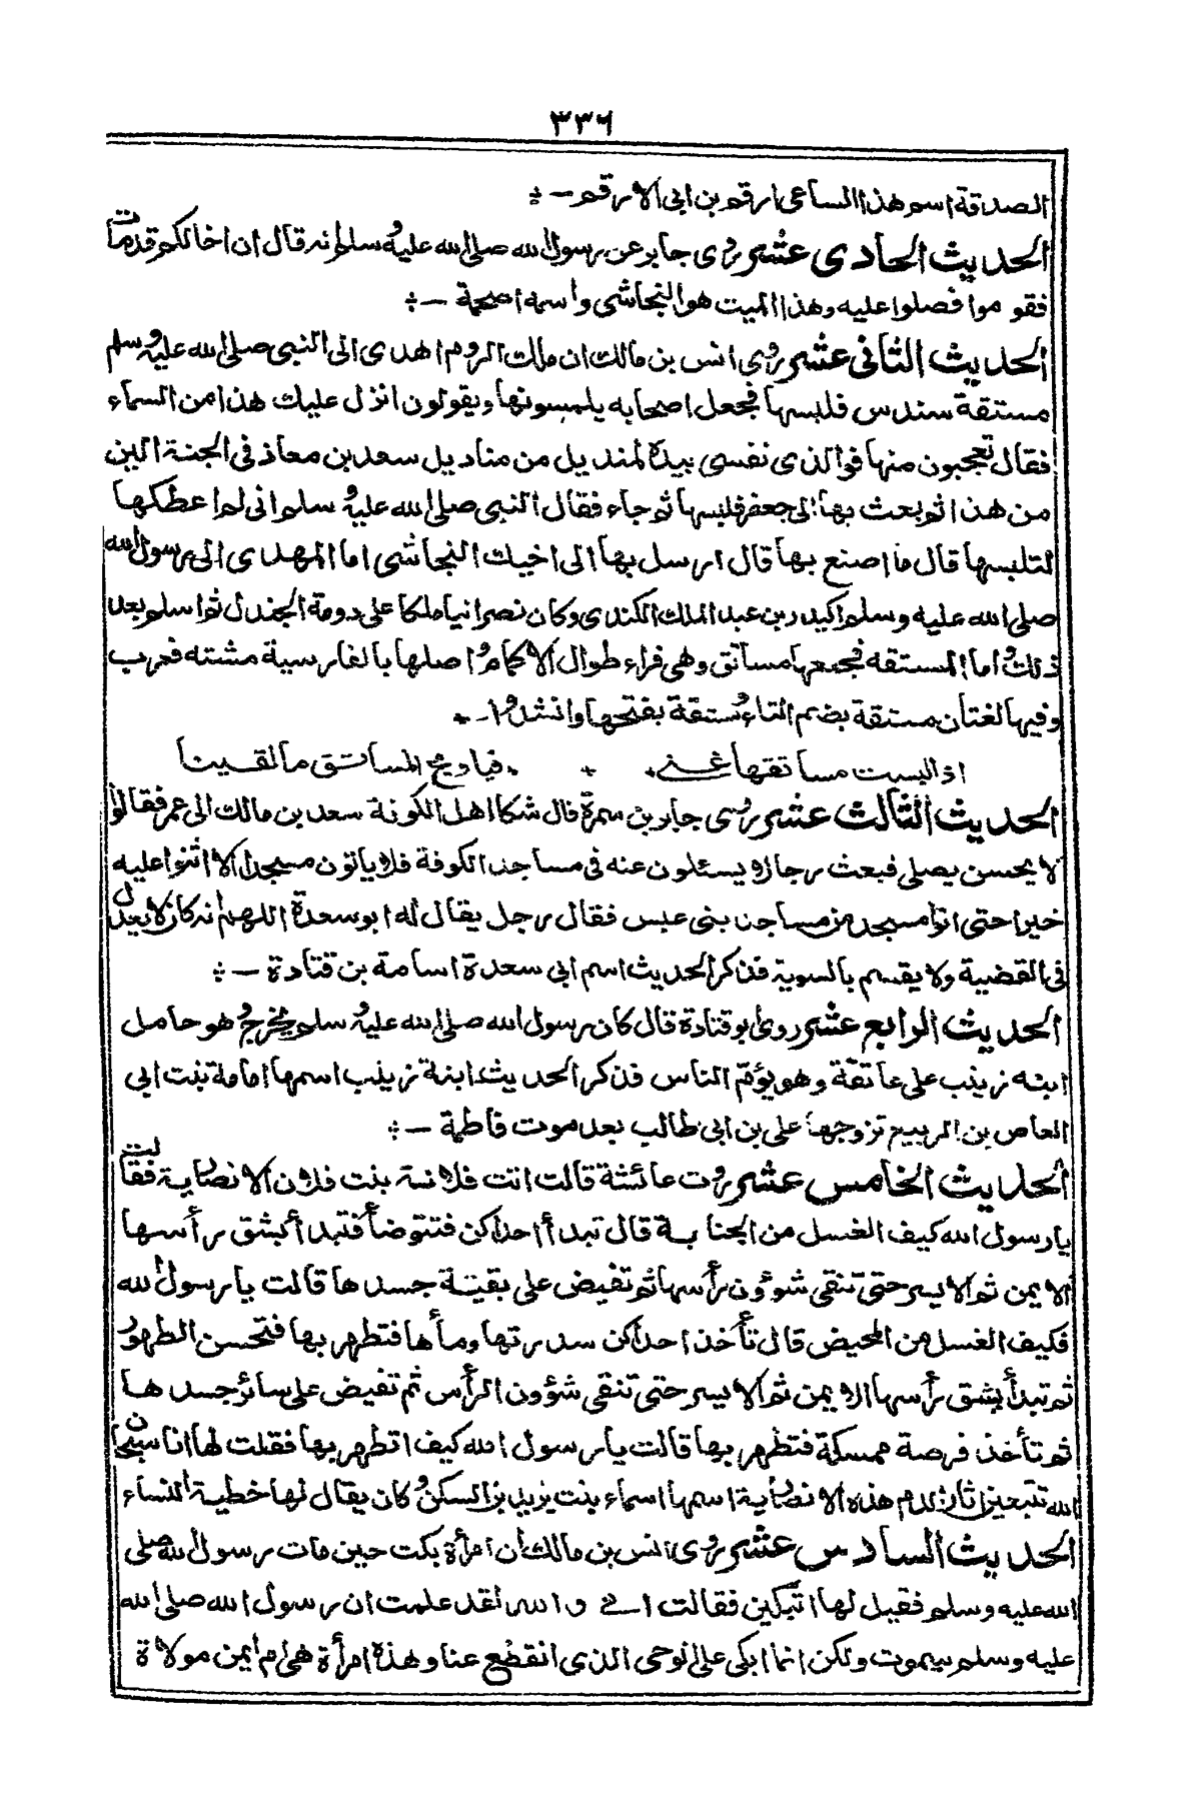 ٣٣٦
الصدقة اسم هذا الساعى ارقم بن ابى الارقم ــ ؞
الحديث الحادى عشر روى جابر عن رسول الله صلى الله عليه وسلم انه قال ان اخا لكم قد مات
فقوموا فصلوا عليه وهذا الميت هو النجاشى واسمه اصحمة ــ ؞
الحديث الثانى عشر روى انس بن مالك ان ملك الروم اهدى الى النبى صلى الله عليه وسلم
مستقة سندس فلبسها فجعل اصحابه يلمسونها ويقولون انزل عليك هذا من السماء
فقال تعجبون منها فوالذى نفسى بيده لمنديل من مناديل سعد بن معاذ فى الجنة الين
من هذا ثم بعث بها الى جعفر فلبسها ثم جاء فقال النبى صلى الله عليه وسلم انى لم اعطكها
لتلبسها قال ما اصنع بها قال ارسل بها الى اخيك النجاشى اما المهدى الى رسول الله
صلى الله عليه وسلم اكيدر بن عبد الملك الكندى وكان نصرانيا ملكا على دومة الجندل ثم اسلم بعد
ذلك واما المستقه فجمعها مساتق وهى فراء طوال الاكمام واصلها بالفارسية مشته فعرب
وفيها لغتان مستقة بضم التاء ومستقة بفتحها وانشدوا ــ ؞
اذا لبست مساتقها غنى ؞ ؞ ؞ فيا ويح المساتق ما لقينا
الحديث الثالث عشر روى جابر بن سمرة قال شكا اهل الكوفة سعد بن مالك الى عمر فقالوا
لا يحسن يصلى فبعث رجالا يسئلون عنه فى مساجد الكوفة فلا ياتون مسجدا الا اثنوا عليه
خيرا حتى اتوا مسجد من مساجد بنى عبس فقال رجل يقال له ابو سعدة اللهم انه كان لا يعدل
فى القضية ولا يقسم بالسوية فذكر الحديث اسم ابى سعدة اسامة بن قتادة ــ ؞
الحديث الرابع عشر روى ابو قتادة قال كان رسول الله صلى الله عليه وسلم يخرج وهو حامل
ابنه زينب على عاتقة وهو يؤمّ الناس فذكر الحديث ابنة زينب اسمها امامة بنت ابى
العاص بن الربيع تزوجها على بن ابى طالب بعد موت فاطمة ــ ؞
الحديث الخامس عشر روت عائشة قالت اتت فلانة بنت فلان الانصارية فقالت
يا رسول الله كيف الغسل من الجنابة قال تبدأ احداكن فتتوضأ فتبدأ بشق رأسها
الايمن ثم الايسر حتى تنقى شوؤن رأسها ثم تفيض على بقيّة جسدها قالت يا رسول الله
فكيف الغسل من المحيض قال تأخذ احداكن سدرتها ومأها فتطهر بها فتحسن الطهور
ثم تبدأ بشق رأسها الايمن ثم الايسر حتى تنقى شؤون الرأس ثم تفيض على سائر جسدها
ثم تأخذ فرصة ممسكة فتطهر بها قالت يا رسول الله كيف اتطهر بها فقلت لها انا سبحان
الله تتبعين اثار الدم هذه الانصارية اسمها اسماء بنت يزيد بن السكن وكان يقال لها خطيبة النساء
الحديث السادس عشر روى انس بن مالك ان امرأة بكت حين مات رسول الله صلى
الله عليه وسلم فقيل لها اتبكين فقالت اى والله لقد علمت ان رسول الله صلى الله
عليه وسلم سيموت ولكن انما ابكى على الوحى الذى انقطع عنا وهذه امرأة هى ام ايمن مولاة